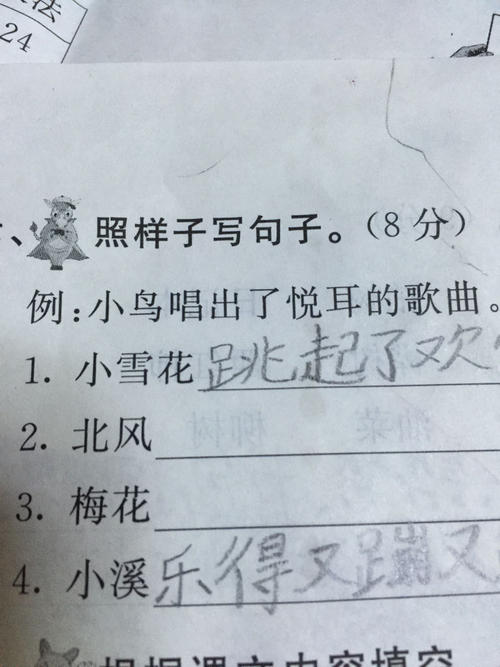 法
24
、照样子写句子。（8分）
例：小鸟唱出了悦耳的歌曲。
1. 小雪花跳起了欢
2. 北风
3. 梅花
4. 小溪乐得又蹦又
根据课文内容填空